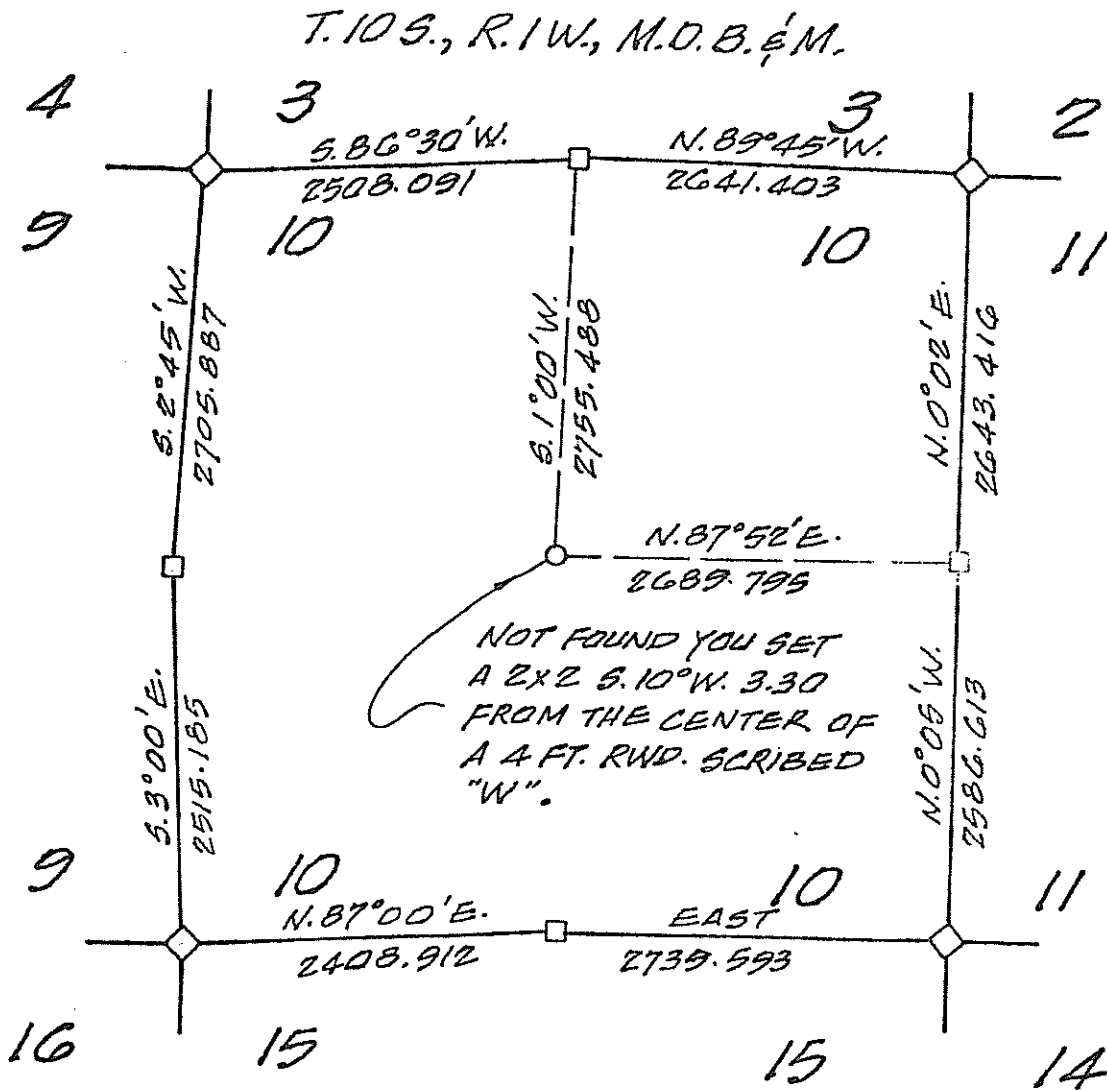 T.10 S., R.1 W., M.D.B.&M.
4
3
3
2
S.86°30'W.
2508.091
N.89°45'W.
2641.403
9
10
10
11
S.2°45'W.
2705.887
S.1°00'W.
2755.488
N.0°02'E.
2643.416
N.87°52'E.
2689.795
NOT FOUND YOU SET
A 2X2 S.10°W. 3.30
FROM THE CENTER OF
A 4 FT. RWD. SCRIBED
"W".
S.3°00'E.
2515.185
N.0°05'W.
2586.613
9
10
10
11
N.87°00'E.
2408.912
EAST
2739.593
16
15
15
14